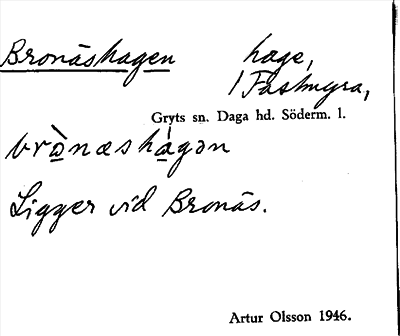 Bronäshagen hage,
1 Fastmyra,
Gryts sn. Daga hd. Söderm. l.
brònæshágən
Ligger vid Bronäs.
Artur Olsson 1946.